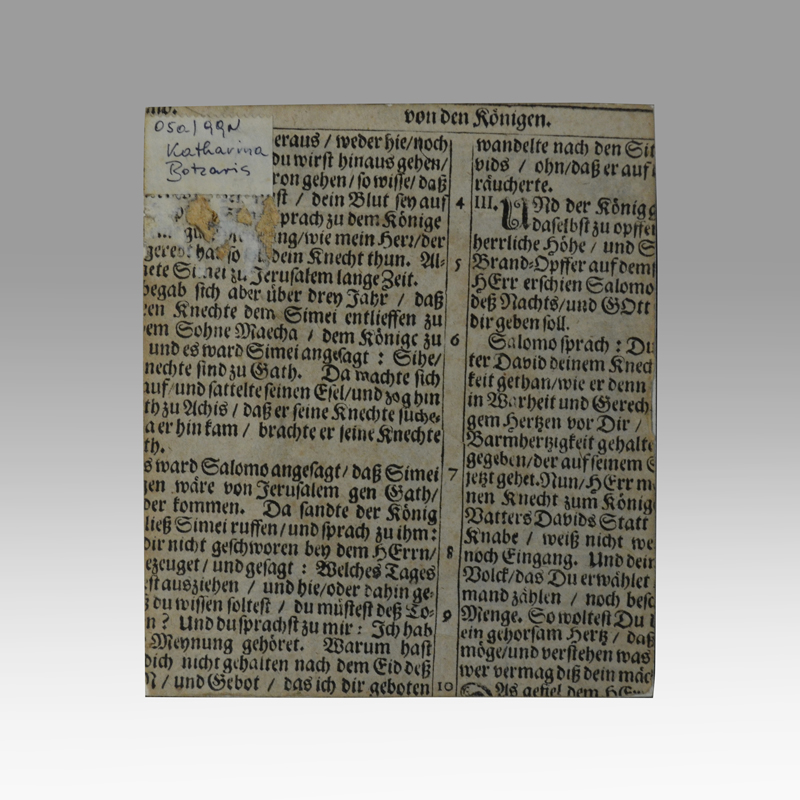 von den Königen.
osa/99N
Katharina
Botzaris
eraus / weder hie/noch
du wirst hinaus gehen/
ron gehen/ so wisse/ daß
st / dein Blut sey auf
sprach zu dem Könige
ng/wie mein Herr/der
geredt hat so dein Knecht thun. Al-
Simei zu Jerusalem lange Zeit.
begab sich aber über drey Jahr / daß
Knechte dem Simei entlieffen zu
dem Sohne Maecha / dem Könige zu
und es ward Simei angesagt : Sihe/
nechte sind zu Gath. Da machte sich
auf/und sattelte seinen Esel/und zog hin
th zu Achis / daß er seine Knechte suche-
a er hin kam / brachte er seine Knechte
th.
s ward Salomo angesagt/ daß Simei
gen wäre von Jerusalem gen Gath/
der kommen. Da sandte der König
ließ Simei ruffen/und sprach zu ihm:
dir nicht geschworen bey dem HErrn/
ezeuget/ und gesagt : Welches Tages
st ausziehen / und hie/oder dahin ge-
du wissen soltest / du müstest deß To-
n? Und du sprachst zu mir: Ich hab
Meynung gehöret. Warum hast
dich nicht gehalten nach dem Eid deß
N / und Gebot / das ich dir geboten
wandelte nach den Sit
vids / ohn/daß er auf
räucherte.
4 III. UNd der König
daselbst zu opffer
herrliche Höhe / und S
5 Brand-Opffer auf dem
HErr erschien Salomo
deß Nachts/und GOtt
dir geben soll.
6 Salomo sprach : Du
ter David deinem Knec
keit gethan/wie er denn
in Warheit und Gerech
gem Hertzen vor Dir /
Barmhertzigkeit gehalte
gegeben/der auf seinem S
7 jetzt gehet. Nun/HErr m
nen Knecht zum König
Vatters Davids Statt
Knabe / weiß nicht we
8 noch Eingang. Und dein
Volck/das Du erwählet
mand zählen / noch besc
9 Menge. So woltest Du
ein gehorsam Hertz / daß
möge/und verstehen was
wer vermag diß dein mäc
10 DAs gefiel dem HErrn